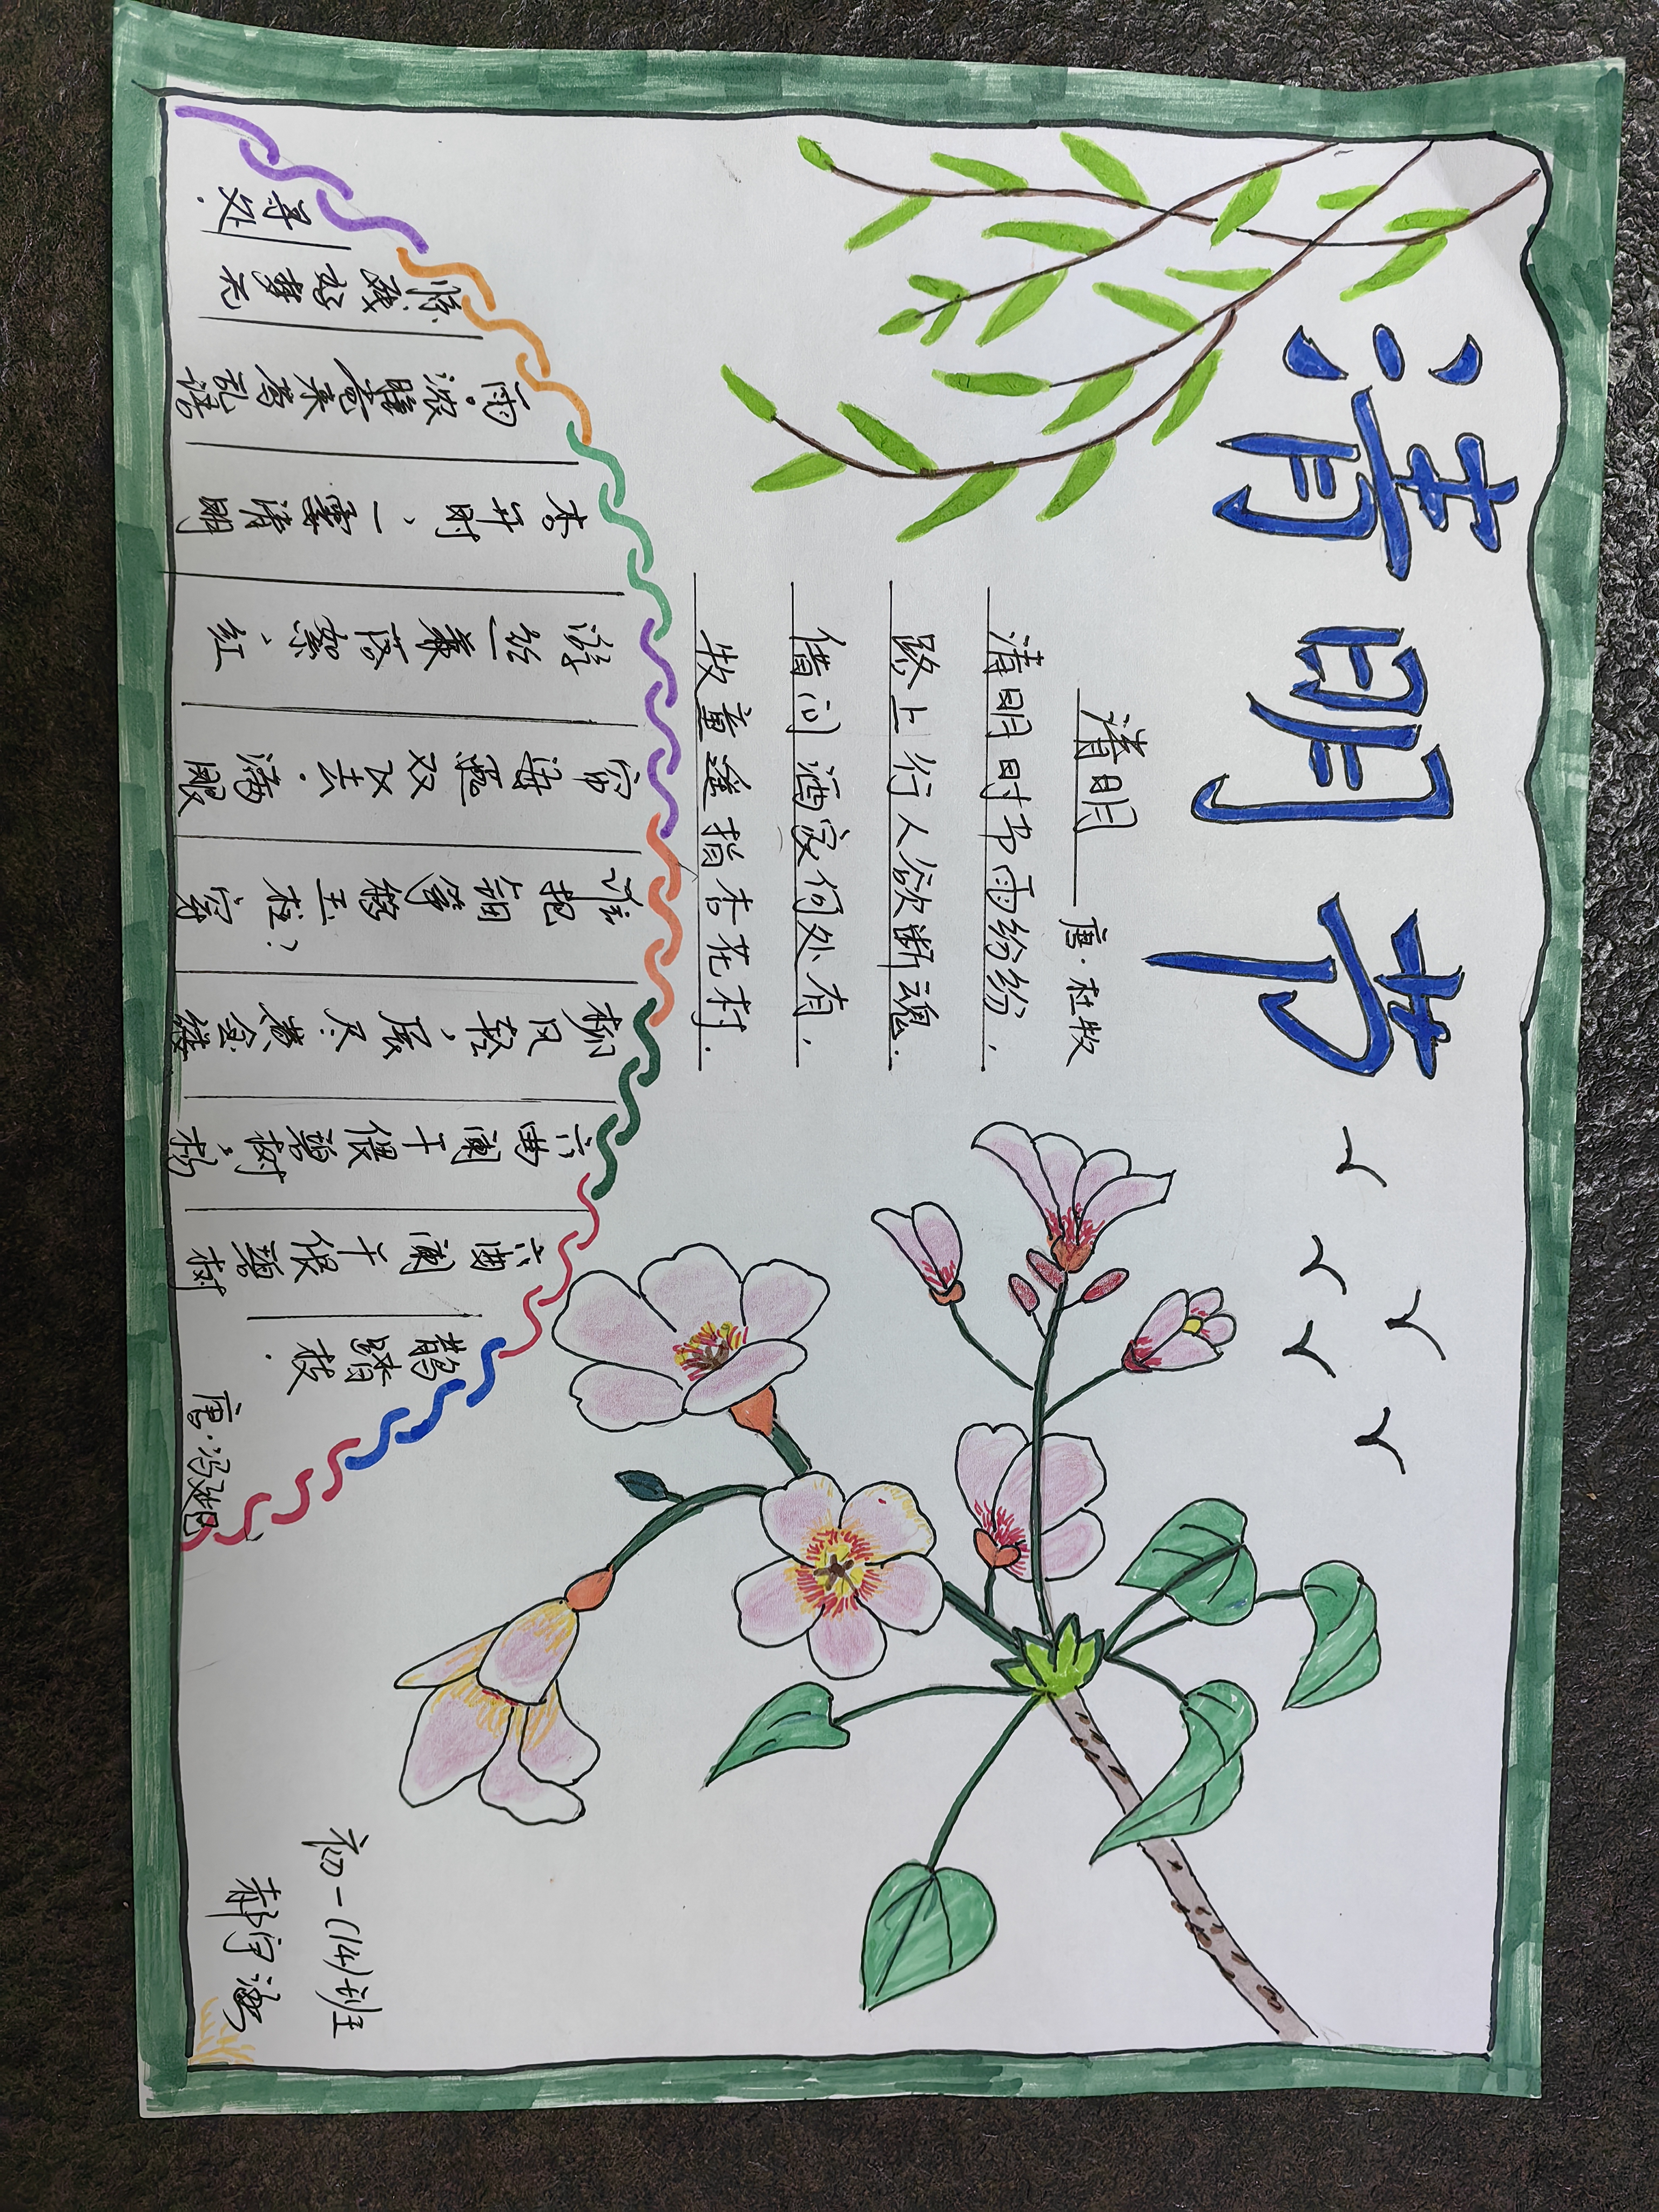 清明节
清明
唐·杜牧
清明时节雨纷纷，
路上行人欲断魂.
借问酒家何处有，
牧童遥指杏花村.
鹊踏枝·
唐·冯延巳
六曲阑干偎碧树
六曲阑干偎碧树。杨
柳风轻，展尽黄金缕
谁把钿筝移玉柱？穿
帘海燕双飞去。满眼
游丝兼落絮、红
杏开时、一霎清明
雨。浓睡觉来莺乱语
惊残好梦无
寻处.
初一(14)班
郝宇涵